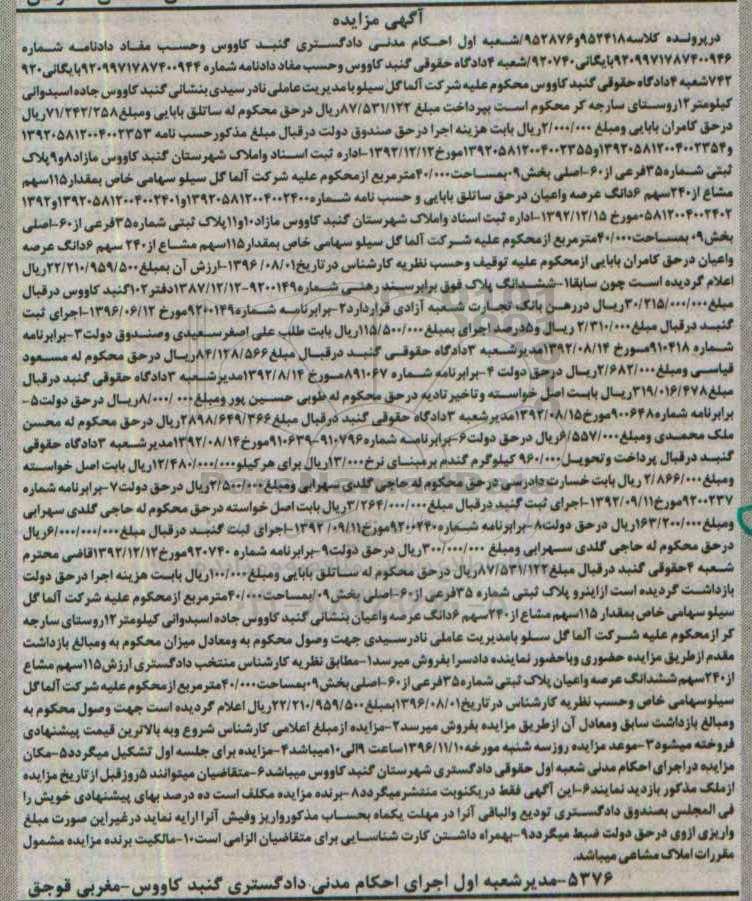 آگهی مزایده
درپرونده کلاسه۹۵۲۴۱۸و۹۵۲۸۷۶/شعبه اول احکام مدنی دادگستری گنبد کاووس وحسب مفاد دادنامه شماره
۹۲۰۹۹۷۱۷۸۷۴۰۰۹۴۶بایگانی۹۲۰۷۴۰/ شعبه ۴دادگاه حقوقی گنبد کاووس وحسب مفاد دادنامه شماره ۹۲۰۹۹۷۱۷۸۷۴۰۰۹۴۴بایگانی۹۲۰
۷۴۲شعبه ۴دادگاه حقوقی گنبد کاووس محکوم علیه شرکت آلما گل سیلو با مدیریت عاملی نادر سیدی بنشانی گنبد کاووس جاده اسیدوانی
کیلومتر۱۲روستای سارجه کر محکوم است بپرداخت مبلغ ۸۷/۵۳۱/۱۲۲ریال درحق محکوم له ساتلق بابایی ومبلغ۷۱/۲۴۲/۲۵۸ریال
درحق کامران بابایی ومبلغ ۲/۰۰۰/۰۰۰ریال بابت هزینه اجرا درحق صندوق دولت درقبال مبلغ مذکورحسب نامه ۱۳۹۲۰۵۸۱۲۰۰۴۰۰۲۳۵۳
و۱۳۹۲۰۵۸۱۲۰۰۴۰۰۲۳۵۴و۱۳۹۲۰۵۸۱۲۰۰۴۰۰۲۳۵۵مورخ۱۳۹۲/۱۲/۱۲-اداره ثبت اسناد واملاک شهرستان گنبد کاووس مازاد۸و۹پلاک
ثبتی شماره۳۵فرعی از۶۰-اصلی بخش۰۹بمساحت۴۰/۰۰۰مترمربع ازمحکوم علیه شرکت آلما گل سیلو سهامی خاص بمقدار۱۱۵سهم
مشاع از۲۴۰سهم ۶دانگ عرصه واعیان درحق ساتلق بابایی و حسب نامه شماره۱۳۹۲۰۵۸۱۲۰۰۴۰۰۲۴۰۰و۱۳۹۲۰۵۸۱۲۰۰۴۰۰۲۴۰۱و۱۳۹۲
۰۵۸۱۲۰۰۴۰۰۲۴۰۲مورخ ۱۳۹۲/۱۲/۱۵-اداره ثبت اسناد واملاک شهرستان گنبد کاووس مازاد۱۰و۱۱پلاک ثبتی شماره۳۵فرعی از۶۰-اصلی
بخش۰۹بمساحت۴۰/۰۰۰مترمربع ازمحکوم علیه شرکت آلما گل سیلو سهامی خاص بمقدار۱۱۵سهم مشاع از۲۴۰ سهم ۶دانگ عرصه
واعیان درحق کامران بابایی ازمحکوم علیه توقیف وحسب نظریه کارشناس درتاریخ۱۳۹۶/۰۸/۰۱-ارزش آن بمبلغ۲۲/۲۱۰/۹۵۹/۵۰۰ریال
اعلام گردیده است چون سابقا۱-ششدانگ پلاک فوق برابرسند رهنی شماره۹۲۰۰۱۴۹-۱۳۸۷/۱۲/۱۲دفتر۱۰۲گنبد کاووس درقبال
مبلغ۳۰/۲۱۵/۰۰۰/۰۰۰ریال دررهن بانک تجارت شعبه آزادی قراردارد۲-برابرنامه شماره۹۲۰۰۱۴۹مورخ ۱۳۹۶/۰۶/۱۲-اجرای ثبت
گنبد درقبال مبلغ۲/۳۱۰/۰۰۰/۰۰۰ ریال و۵درصد اجرای بمبلغ۱۱۵/۵۰۰/۰۰۰ریال بابت طلب علی اصغرسعیدی وصندوق دولت۳-برابرنامه
شماره ۹۱۰۴۱۸مورخ ۱۳۹۲/۰۸/۱۴مدیرشعبه ۳دادگاه حقوقی گنبد درقبال مبلغ۸۴/۱۲۸/۵۶۶ریال درحق محکوم له مسعود
قیاسی ومبلغ۲/۶۸۲/۰۰۰ریال درحق دولت ۴-برابرنامه شماره ۸۹۱۰۶۷مورخ ۱۳۹۲/۸/۱۴مدیرشعبه ۳دادگاه حقوقی گنبد درقبال
مبلغ۳۱۹/۰۱۶/۴۷۸ریال بابت اصل خواسته وتاخیرتادیه درحق محکوم له طوبی حسین پور ومبلغ ۸/۰۰۰/۰۰۰ریال درحق دولت۵-
برابرنامه شماره۹۰۰۶۴۸مورخ۱۳۹۲/۰۸/۱۵مدیرشعبه ۳دادگاه حقوقی گنبد درقبال مبلغ۲۸۹۸/۶۴۹/۳۶۶ریال درحق محکوم له محسن
ملک محمدی ومبلغ۶/۵۵۷/۰۰۰ریال درحق دولت۶-برابرنامه شماره۹۱۰۷۹۶-۹۱۰۶۳۹مورخ۱۳۹۲/۰۸/۱۴مدیرشعبه ۳دادگاه حقوقی
گنبد درقبال پرداخت وتحویل۹۶۰/۰۰۰ کیلوگرم گندم برمبنای نرخ ۱۳/۰۰۰ریال برای هرکیلو۱۲/۴۸۰/۰۰۰/۰۰۰ریال بابت اصل خواسته
ومبلغ۲/۸۶۶/۰۰۰ ریال بابت خسارت دادرسی درحق محکوم له حاجی گلدی سهرابی ومبلغ۲/۵۰۰/۰۰۰ریال درحق دولت۷-برابرنامه شماره
۹۲۰۰۲۳۷مورخ۱۳۹۲/۰۹/۱۱-اجرای ثبت گنبد درقبال مبلغ۳/۲۶۴/۰۰۰/۰۰۰ریال بابت اصل خواسته درحق محکوم له حاجی گلدی سهرابی
ومبلغ۱۶۳/۲۰۰/۰۰۰ریال درحق دولت۸-برابرنامه شماره۹۲۰۰۲۴۰مورخ۱۳۹۲/۰۹/۱۱-اجرای ثبت گنبد درقبال مبلغ ۶/۰۰۰/۰۰۰/۰۰۰ریال
درحق محکوم له حاجی گلدی سهرابی ومبلغ ۳۰۰/۰۰۰/۰۰۰ریال درحق دولت۹-برابرنامه شماره ۹۲۰۷۴۰مورخ۱۳۹۲/۱۲/۱۲قاضی محترم
شعبه ۴حقوقی گنبد درقبال مبلغ۸۷/۵۳۱/۱۲۲ریال درحق محکوم له ساتلق بابایی ومبلغ۱۰۰/۰۰۰ریال بابت هزینه اجرا درحق دولت
بازداشت گردیده است ازاینرو پلاک ثبتی شماره ۳۵فرعی از۶۰-اصلی بخش۰۹بمساحت۴۰/۰۰۰مترمربع ازمحکوم علیه شرکت آلما گل
سیلو سهامی خاص بمقدار ۱۱۵سهم مشاع از۲۴۰سهم ۶دانگ عرصه واعیان بنشانی گنبد کاووس جاده اسیدوانی کیلومتر۱۲روستای سارجه
کر ازمحکوم علیه شرکت آلما گل سلو بامدیریت عاملی نادرسیدی جهت وصول محکوم به ومعادل میزان محکوم به ومبالغ بازداشت
مقدم ازطریق مزایده حضوری وباحضور نماینده دادسرا بفروش میرسد۱-مطابق نظریه کارشناس منتخب دادگستری ارزش۱۱۵سهم مشاع
از۲۴۰سهم ششدانگ عرصه واعیان پلاک ثبتی شماره۳۵فرعی از۶۰-اصلی بخش۰۹بمساحت۴۰/۰۰۰مترمربع ازمحکوم علیه شرکت آلماگل
سیلوسهامی خاص وحسب نظریه کارشناس درتاریخ۱۳۹۶/۰۸/۰۱بمبلغ۲۲/۲۱۰/۹۵۹/۵۰۰ریال اعلام گردیده است جهت وصول محکوم به
ومبالغ بازداشت سابق ومعادل آن ازطریق مزایده بفروش میرسد۲-مزایده ازمبلغ اعلامی کارشناس شروع وبه بالاترین قیمت پیشنهادی
فروخته میشود۳-موعد مزایده روزسه شنبه مورخه۱۳۹۶/۱۱/۱۰ساعت ۹الی۱۰میباشد۴-مزایده برای جلسه اول تشکیل میگردد۵-مکان
مزایده دراجرای احکام مدنی شعبه اول حقوقی دادگستری شهرستان گنبد کاووس میباشد۶-متقاضیان میتوانند ۵روزقبل ازتاریخ مزایده
ازملک مذکور بازدید نمایند۶-این آگهی فقط دریکنوبت منتشرمیگردد۸-برنده مزایده مکلف است ده درصد بهای پیشنهادی خویش را
فی المجلس بصندوق دادگستری تودیع والباقی آنرا در مهلت یکماه بحساب مذکورواریز وفیش آنرا ارایه نماید درغیراین صورت مبلغ
واریزی ازوی درحق دولت ضبط میگردد۹-بهمراه داشتن کارت شناسایی برای متقاضیان الزامی است۱۰-مالکیت برنده مزایده مشمول
مقررات املاک مشاعی میباشد.
۵۳۷۶-مدیرشعبه اول اجرای احکام مدنی دادگستری گنبد کاووس-مغربی قوجق